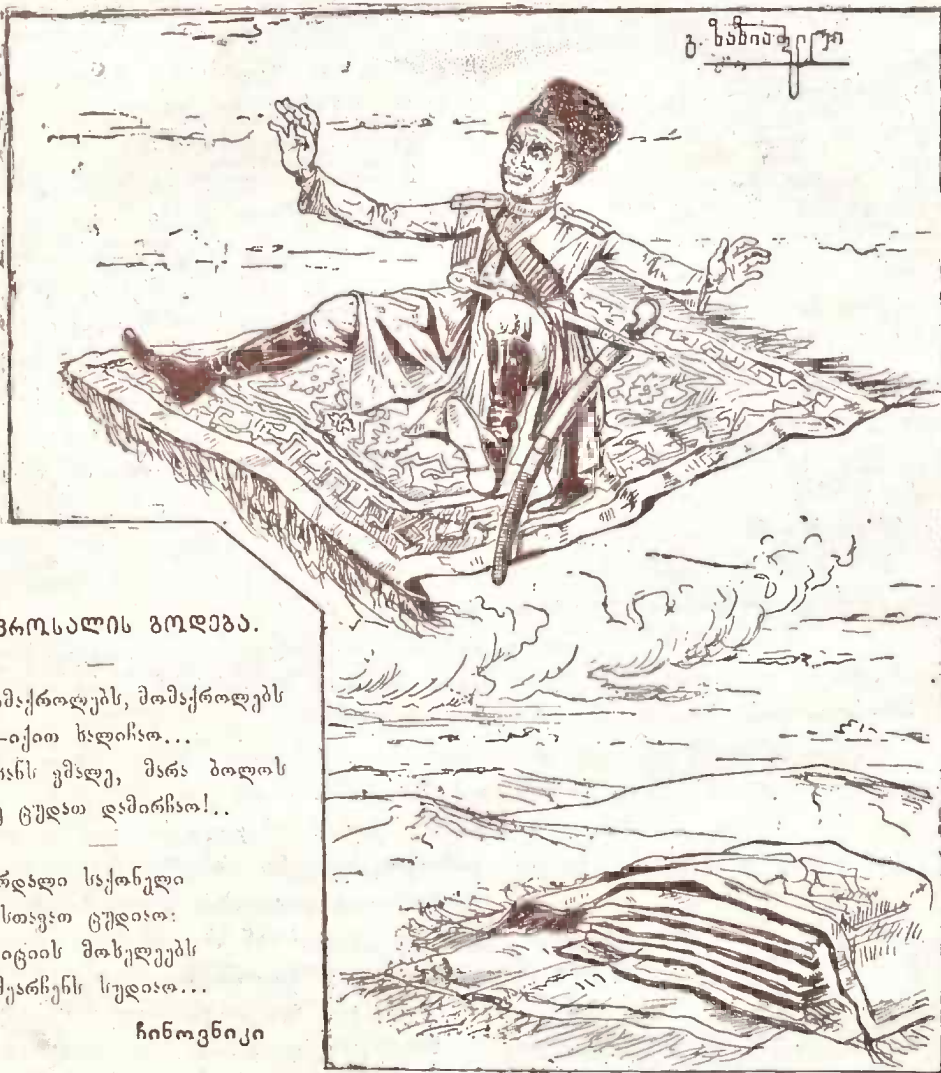 გ. ზაზიაშვილი
ვროსალის გოდება.
მაქროლებს, მომაქროლებს
-იქით ხალიჩაო...
ანს ვმალე, მარა ბოლოს
ცუდათ დამირჩაო!..
რდალი საქონელი
სთავათ ცუდიაო:
იციის მოხელეებს
სუდიაო...
ჩინოვნიკი